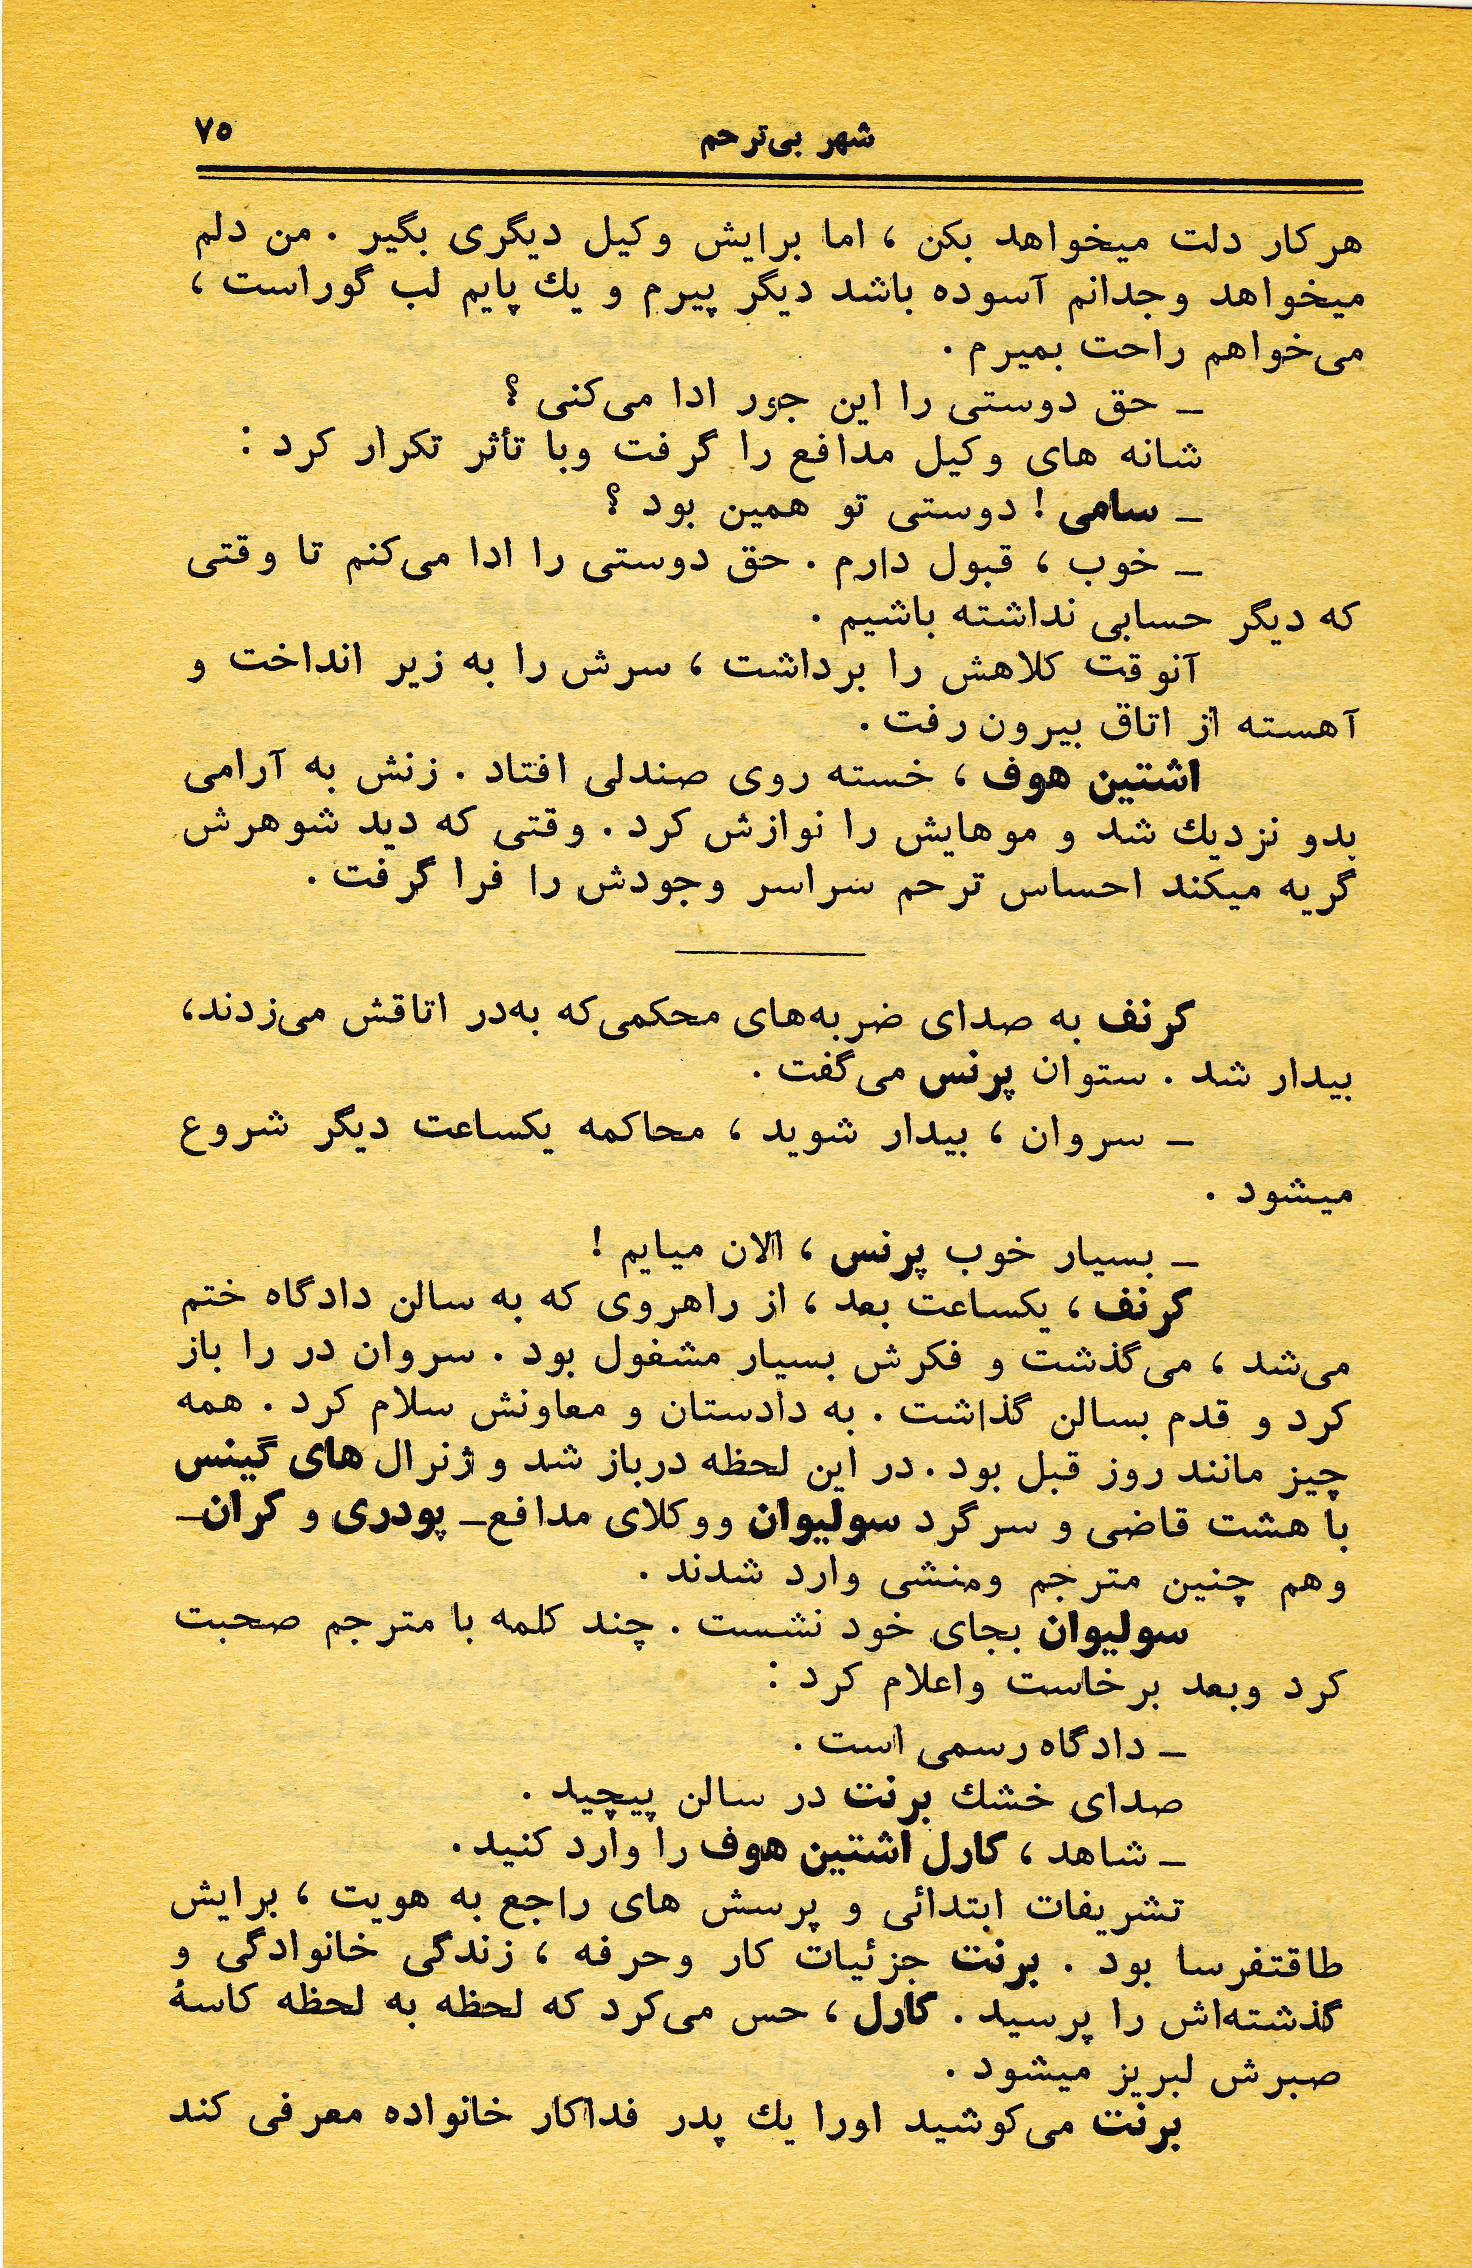 شهر بی‌ترحم
۷۵
هرکار دلت میخواهد بکن ، اما برایش وکیل دیگری بگیر . من دلم
میخواهد وجدانم آسوده باشد دیگر پیرم و یك پایم لب گوراست ،
می‌خواهم راحت بمیرم .
ـ حق دوستی را این جور ادا می‌کنی ؟
شانه های وکیل مدافع را گرفت وبا تأثر تکرار کرد :
ـ سامی ! دوستی تو همین بود ؟
ـ خوب ، قبول دارم . حق دوستی را ادا می‌کنم تا وقتی
که دیگر حسابی نداشته باشیم .
آنوقت کلاهش را برداشت ، سرش را به زیر انداخت و
آهسته از اتاق بیرون رفت .
اشتین هوف ، خسته روی صندلی افتاد . زنش به آرامی
بدو نزدیك شد و موهایش را نوازش کرد . وقتی که دید شوهرش
گریه میکند احساس ترحم سراسر وجودش را فرا گرفت .
گرنف به صدای ضربه‌های محکمی‌که به‌در اتاقش می‌زدند،
بیدار شد . ستوان پرنس می‌گفت .
ـ سروان ، بیدار شوید ، محاکمه یکساعت دیگر شروع
میشود .
ـ بسیار خوب پرنس ، الان میایم !
گرنف ، یکساعت بعد ، از راهروی که به سالن دادگاه ختم
می‌شد ، می‌گذشت و فکرش بسیار مشغول بود . سروان در را باز
کرد و قدم بسالن گذاشت . به دادستان و معاونش سلام کرد . همه
چیز مانند روز قبل بود . در این لحظه درباز شد و ژنرال های گینس
با هشت قاضی و سرگرد سولیوان ووکلای مدافع‌ـ پودری و کران‌ـ
وهم چنین مترجم ومنشی وارد شدند .
سولیوان بجای خود نشست . چند کلمه با مترجم صحبت
کرد وبعد برخاست واعلام کرد :
ـ دادگاه رسمی است .
صدای خشك برنت در سالن پیچید .
ـ شاهد ، کارل اشتین هوف را وارد کنید .
تشریفات ابتدائی و پرسش های راجع به هویت ، برایش
طاقتفرسا بود . برنت جزئیات کار وحرفه ، زندگی خانوادگی و
گذشته‌اش را پرسید . کارل ، حس می‌کرد که لحظه به لحظه کاسهٔ
صبرش لبریز میشود .
برنت می‌کوشید اورا یك پدر فداکار خانواده معرفی کند